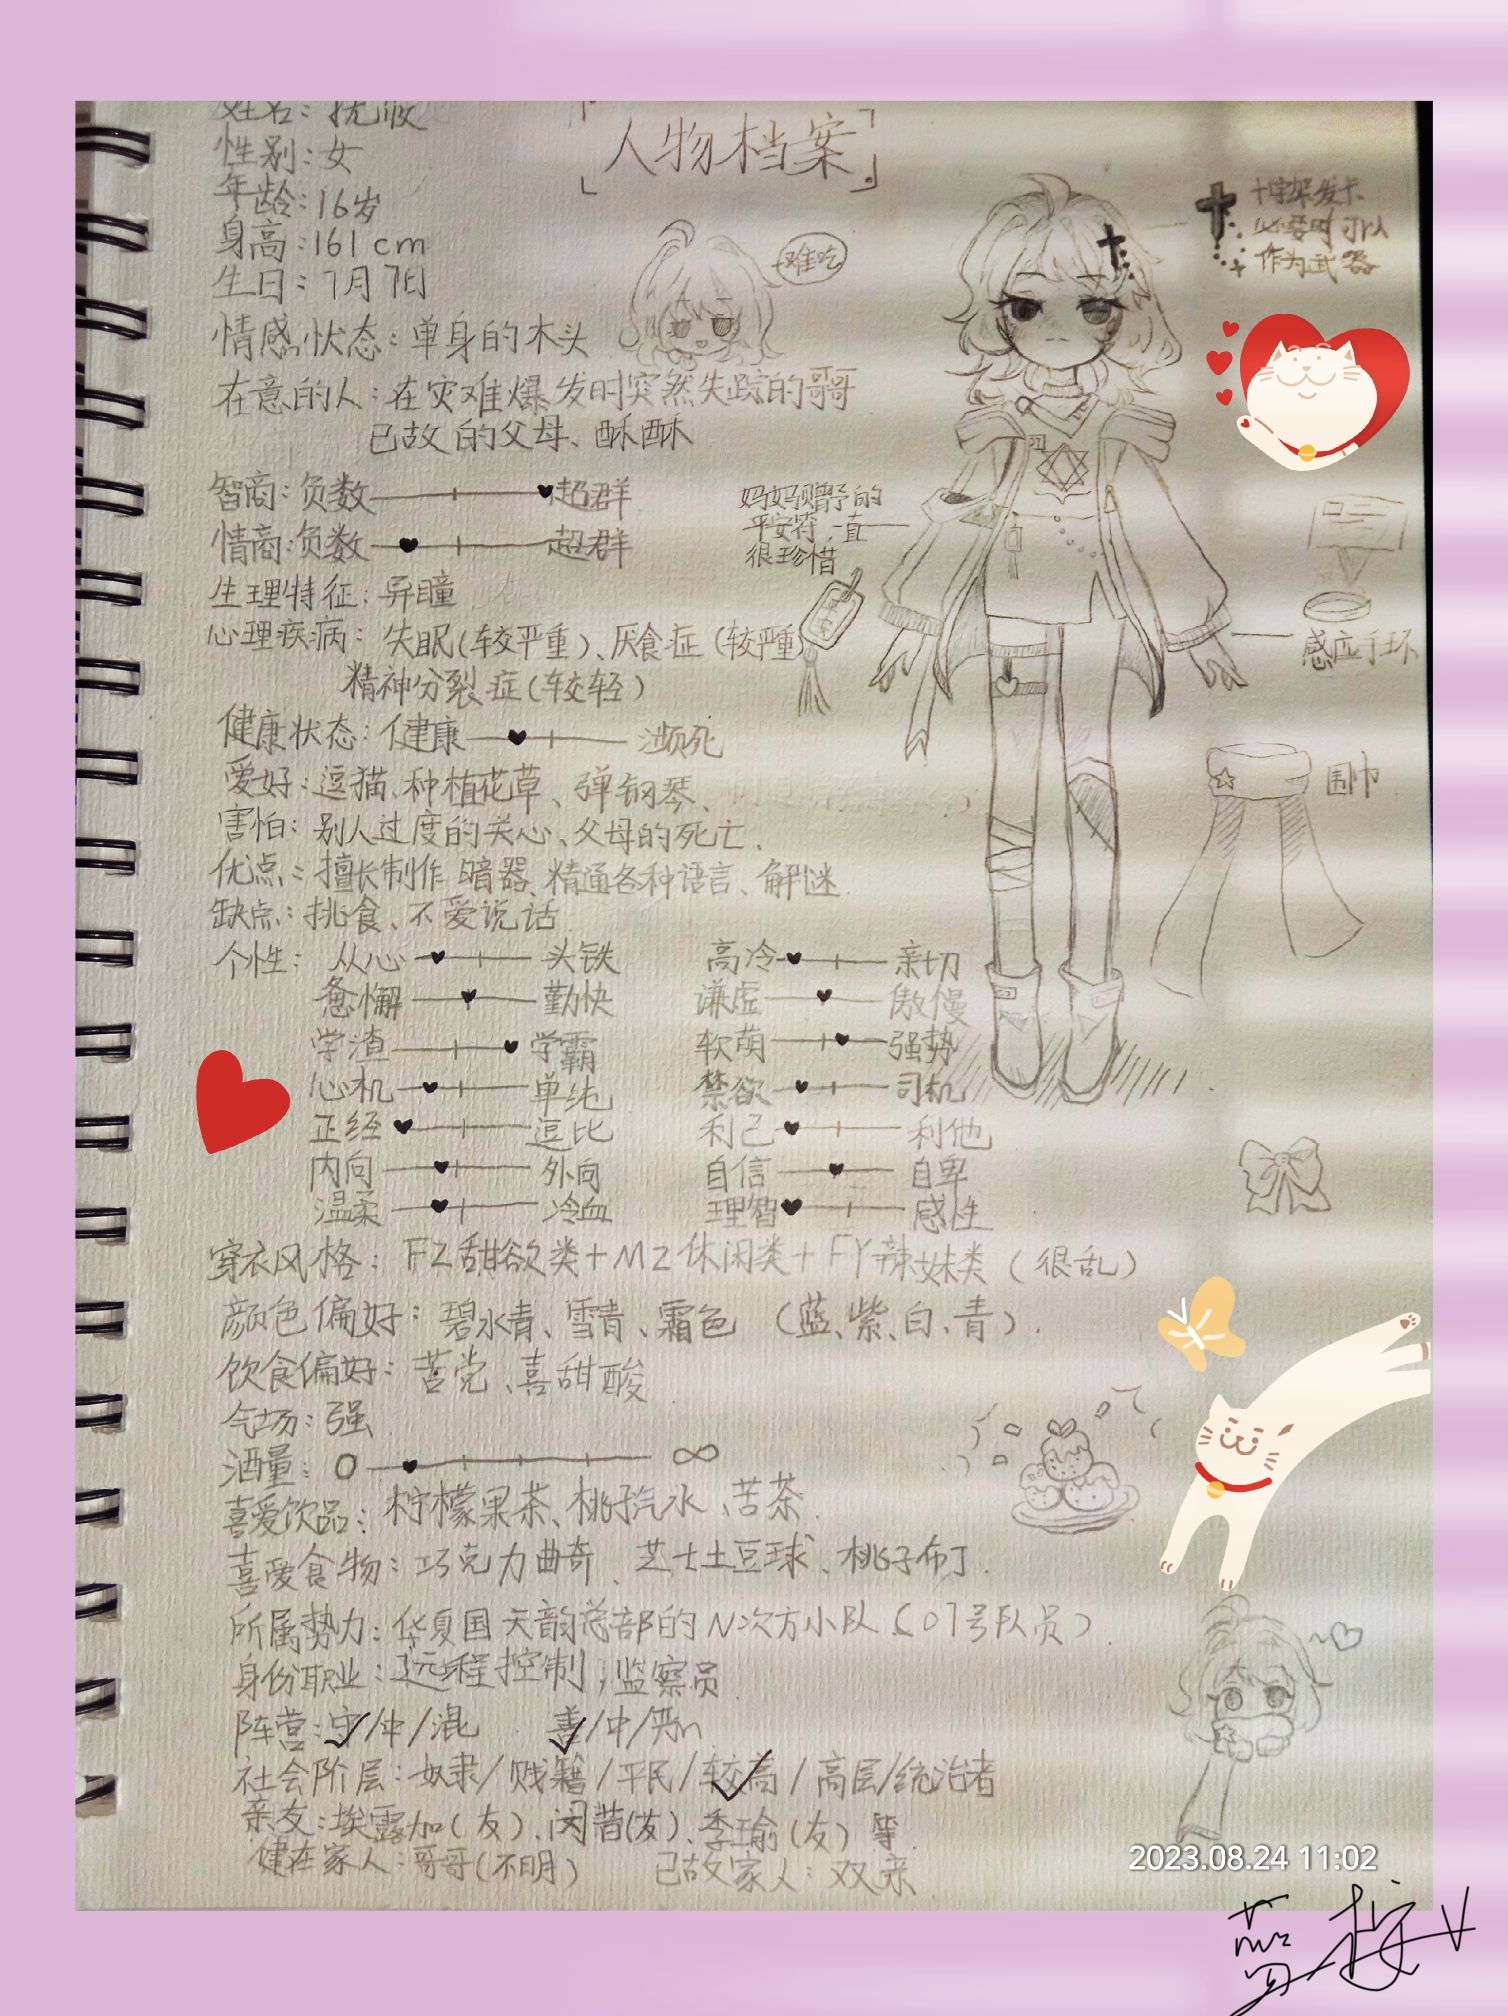 人物档案
姓名：抚
性别：女
年龄：16岁
身高：161cm
生日：7月7日
难吃
十字架发卡
必要时可以
作为武器
情感状态：单身的木头
在意的人：在灾难爆发时突然失踪的哥哥
已故的父母、酥酥
智商：负数 超群
情商：负数 超群
妈妈赠予的
平安符，一直
很珍惜
平安
生理特征：异瞳
心理疾病：失眠（较严重）、厌食症（较严重）
精神分裂症（较轻）
感应手环
健康状态：健康 濒死
爱好：逗猫、种植花草、弹钢琴、
围巾
害怕：别人过度的关心、父母的死亡、
优点：擅长制作暗器、精通各种语言、解谜
缺点：挑食、不爱说话
个性：从心 头铁 高冷 亲切
怠懈 勤快 谦虚 傲慢
学渣 学霸 软萌 强势
心机 单纯 禁欲 司机
正经 逗比 利己 利他
内向 外向 自信 自卑
温柔 冷血 理智 感性
穿衣风格：FZ甜欲类+MZ休闲类+FY辣妹类（很乱）
颜色偏好：碧水青、雪青、霜色（蓝、紫、白、青）.
饮食偏好：苦党、喜甜酸
气场：强
酒量：0 ∞
喜爱饮品：柠檬果茶、桃子汽水、苦茶.
喜爱食物：巧克力曲奇、芝士土豆球、桃子布丁.
所属势力：华夏国天韵总部的N次方小队（07号队员）.
身份职业：远程控制，监察员
阵营：守/中/混 善/中/恶
社会阶层：奴隶/贱籍/平民/较高/高层/统治者
亲友：埃露加（友）、闵昔（友）、季瑜（友）等
健在家人：哥哥（不明） 已故家人：双亲
2023.08.24 11:02